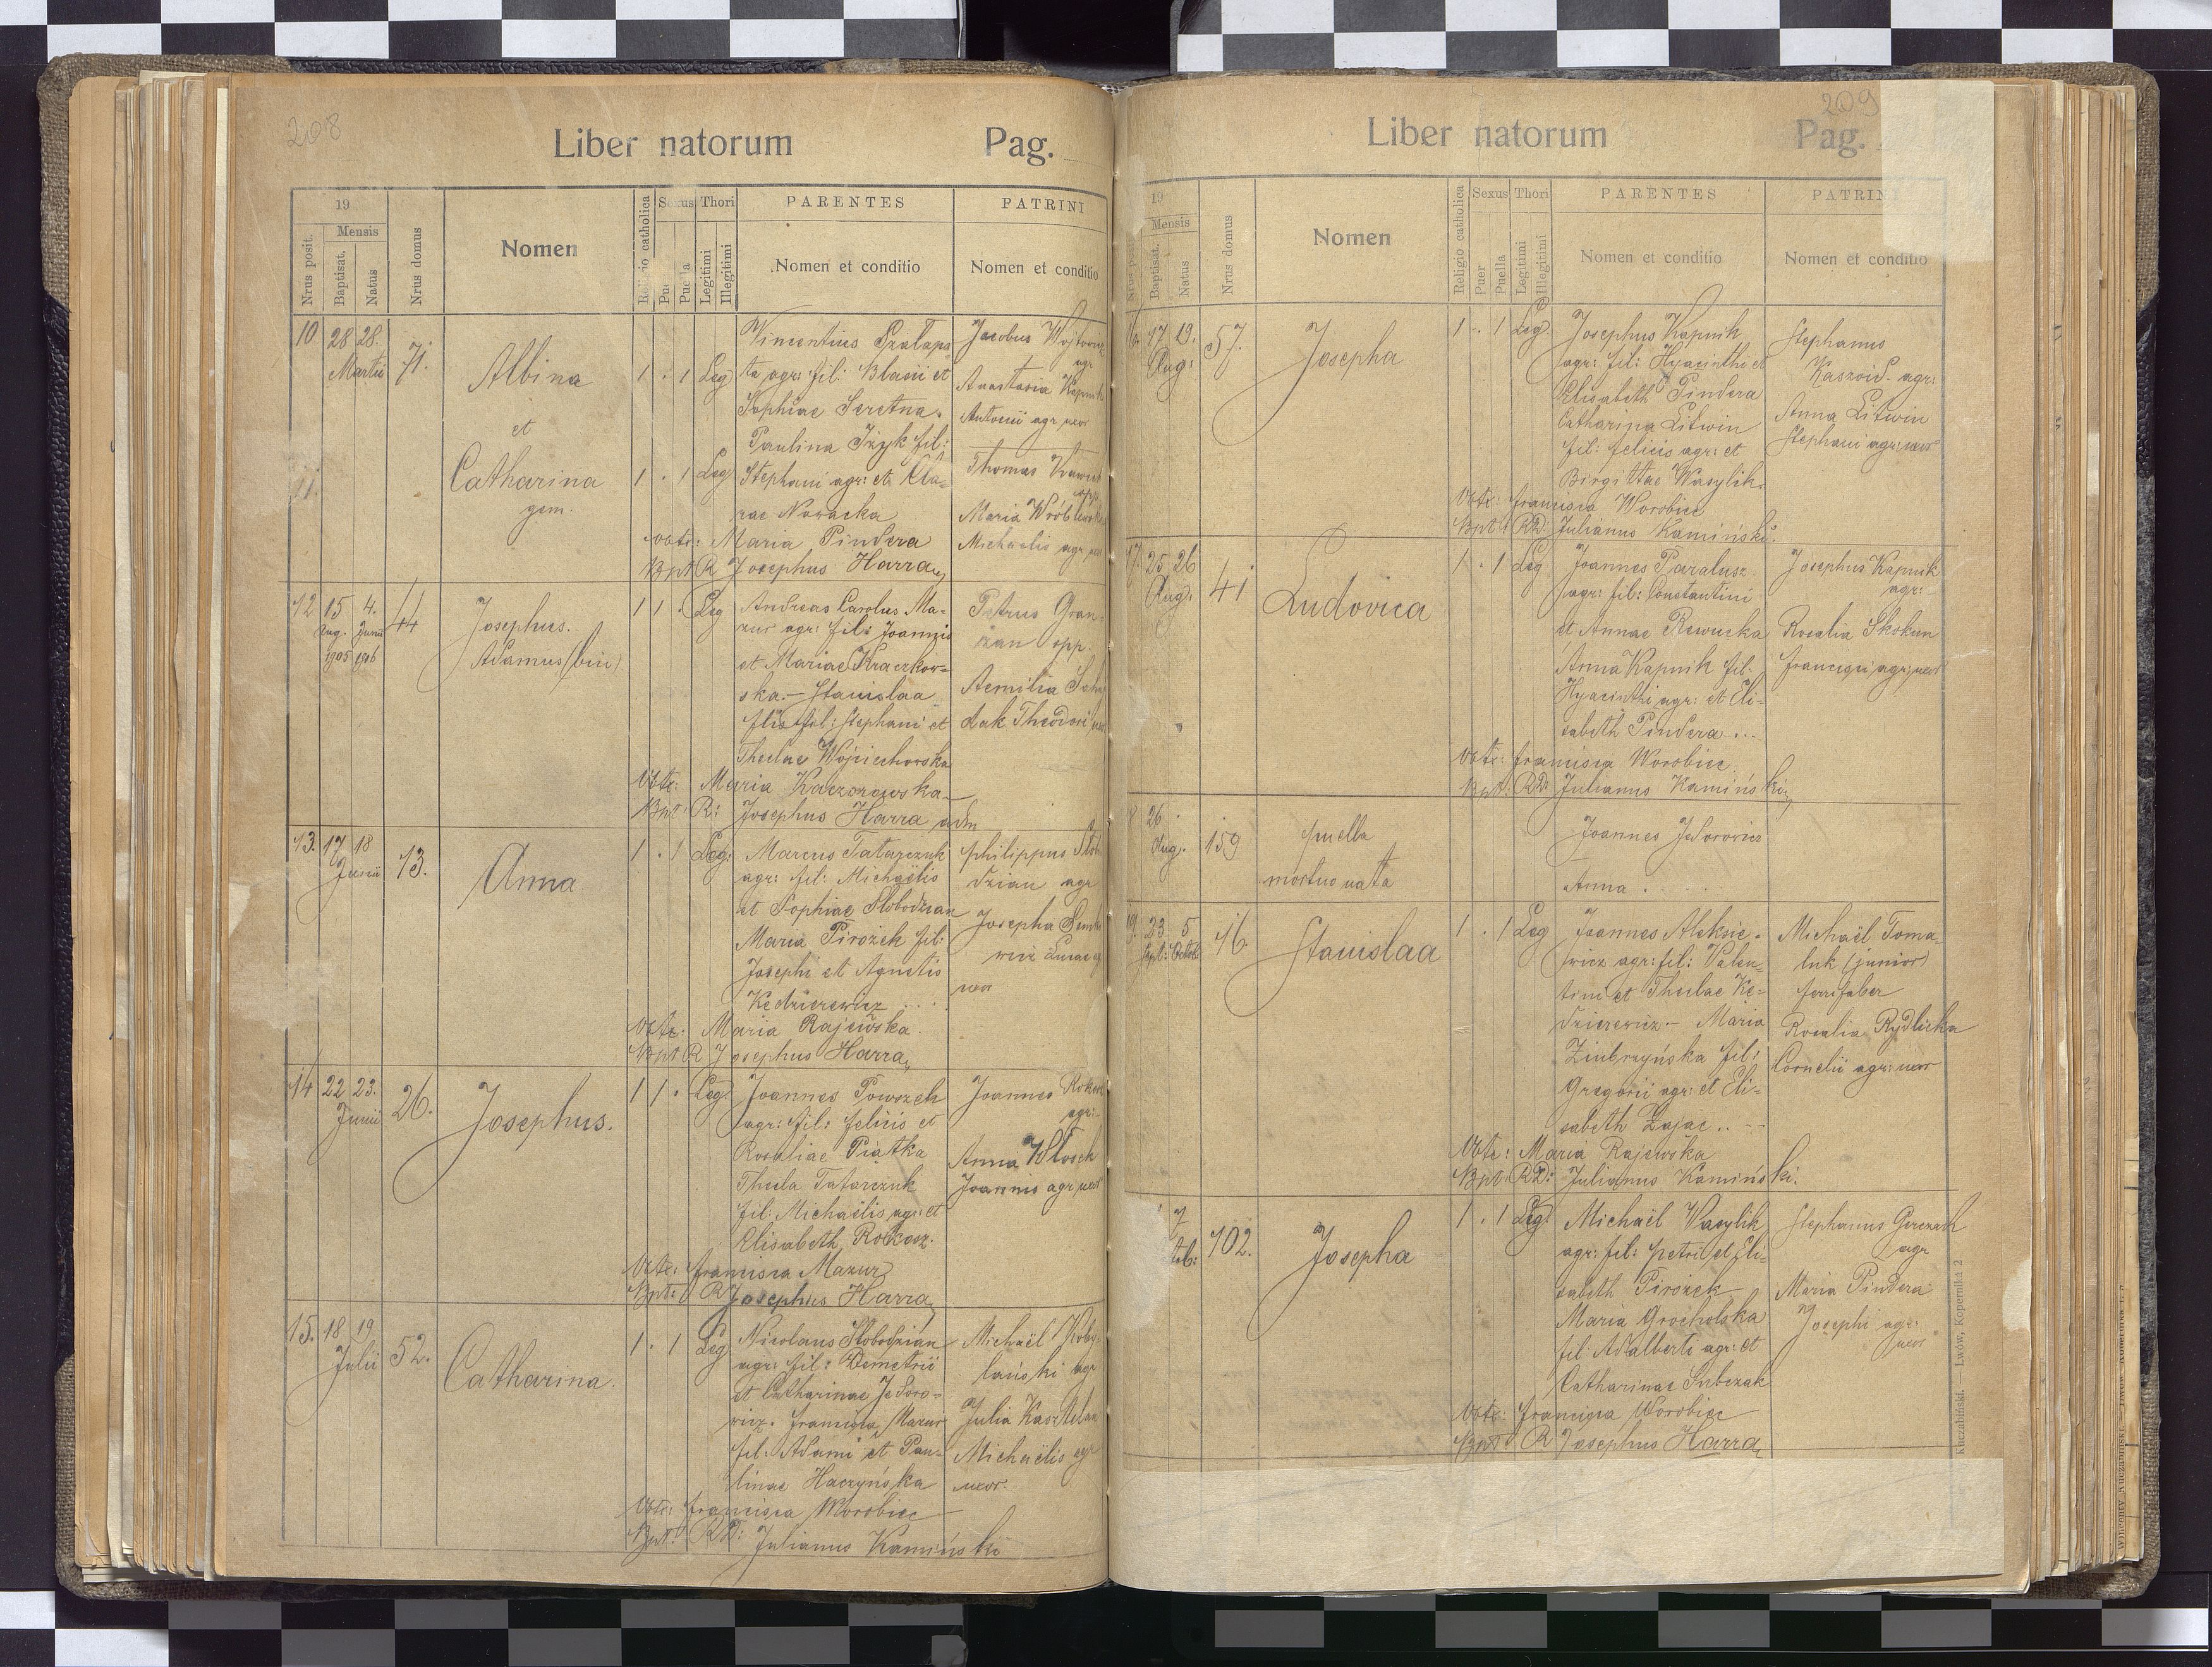 208
Liber natorum Pag.
19
Mensis
Nrus posit.
Baptisat.
Natus
Nrus domus
Nomen
Religio catholica
Sexus
Puella
Thori
Legitimi
Illegitimi
PARENTES
Nomen et conditio
PATRINI
Nomen et conditio
10 28 28. 71.
Martii
Albina
et
11.
Catharina
gem.
1 . 1 Leg
1 . 1 Leg
Vincentius
agr: fil: Blasii et
Sophiae Seretna.
Paulina Iżyk fil:
Stephani agr: et Cla-
rae Nowacka
obstr: Maria Pindera
Bpt R Josephus Harra
Jacobus
agr
Anastasia
Antonii agr uxor
Thomas
Maria
Michaelis agr
12 15 4. 44
Aug. Junii
1905 1906
Josephus.
Adamus (bin)
1 1 . Leg
Andreas Carolus Ma-
zur agr: fil: Joannis
et Mariae Kraczkow-
ska. – Stanislaa
fil: Stephani et
Theclae Wojciechowska
Obstr: Maria Kaczorowska
Bpt: R: Josephus Harra adm
Petrus Gran-
opp.
Aemilia
dak Theodori
13. 17 18 13.
Junii
Anna
1 . 1 Leg:
Marcus Tatarczuk
agr: fil: Michaëlis
et Sophiae Slobodzian
Maria Pirożek fil:
Josephi et Agnetis
Kędzierewicz ....
Obstr: Maria Rajewska.
Bpt R Josephus Harra
Philippus
dzian agr
Josepha
uxor
14 22 23. 26.
Junii
Josephus.
1 1 . Leg.
Joannes Powszek
agr: fil: Felicis et
Rosaliae Piątka
Thecla Tatarczuk
fil: Michaëlis agr: et
Elisabeth Rokosz.
Obstr: Francisca Mazur
Bpt: R Josephus Harra
Joannes
agr:
Anna
Joannis agr uxor
15. 18 19 52.
Julii
Catharina.
1 . 1 Leg
Nicolaus Slobodzian
agr: fil: Demetrii
et Catharinae Jedoro-
wicz. Francisca Mazur
fil: Adami et Pau-
linae Haczyńska
Obstr: Francisca Worobiec
Bpt: RD: Julianus Kamiński
Michaël
lański agr
Julia Kasztelan
Michaëlis agr
uxor.
209
Liber natorum Pag.
19
Mensis
Baptisat.
Natus
Nrus domus
Nomen
Religio catholica
Sexus
Puer
Puella
Thori
Legitimi
Illegitimi
PARENTES
Nomen et conditio
PATRIN
Nomen et conditio
17 19. 57.
Aug:
Josepha
1 . 1 Leg.
Josephus Kapnik
agr: fil: Hyacinthi et
Elisabeth Pindera
Catharina Litwin
fil: Felicis agr: et
Birgittae Wasylik.
Obstr: Francisca Worobiec
Bpt: RD: Julianus Kamiński.
Stephanus
agr:
Anna Litwin
Stephani agr: uxor
17. 25 26 41
Aug.
Ludovica
1 . 1 Leg
Joannes Paralusz
agr: fil: Constantini
et Annae Rewucka
Anna Kapnik fil.
Hyacinthi agr: et Eli-
sabeth Pindera ...
Obstr: Francisca Worobiec
Bpt: RD: Julianus Kamiński
Josephus Kapnik
agr:
Rosalia Skokun
Francisci agr: uxor
26
Aug. 159
puella
mortuo nata
Joannes Jedorowicz
Anna .
23 5 16
Sept: Octob
Stanislaa
1 . 1 Leg
Joannes Aleksie-
wicz agr: fil: Valen-
tini et Theclae Kę-
dzierewicz – Maria
fil:
Gregorii agr: et Eli-
sabeth Zając ..
Obstr: Maria Rajewska
Bpt: RD: Julianus Kamiński.
Michaël Toma-
luk (junior)
ferrifaber
Rosalia Rydlicka
Cornelii agr: uxor
7 102.
Josepha
1 . 1 Leg:
Michaël Wasylik
agr: fil: Petri et Eli-
sabeth Pirożek
Maria Grocholska
fil: Adalberti agr: et
Catharinae Subczak
Obstr: Francisca Worobiec
Bpt: R Josephus Harra
Stephanus
agr
Maria Pindera
Josephi agr:
uxor
Kuczabiński. — Lwów, Kopernika 2